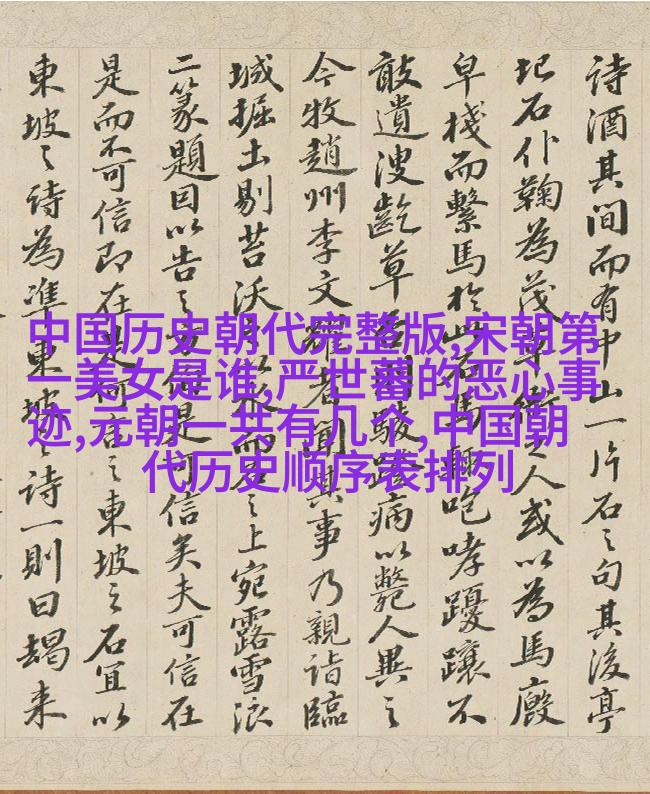 詩酒其間而有中山一片石之句其後亭
圮石仆鞠為茂衛之人或以為馬廄
皁棧而繫馬於此石馬輒咆哮躩不
敢遺溲齕草病以斃人異之
今牧趙州李文聞其事乃親詣臨
城掘土剔苔沃而石之上宛露雪浪
二篆題因以告之是可信矣夫可信在
是而不可信即在是之東坡之石宜以
東坡之詩為準東坡之詩一則曰朅来
中国历史朝代完整版,宋朝第
一美女是谁,严世蕃的恶心事
迹,元朝一共有几个,中国朝
代历史顺序表排列